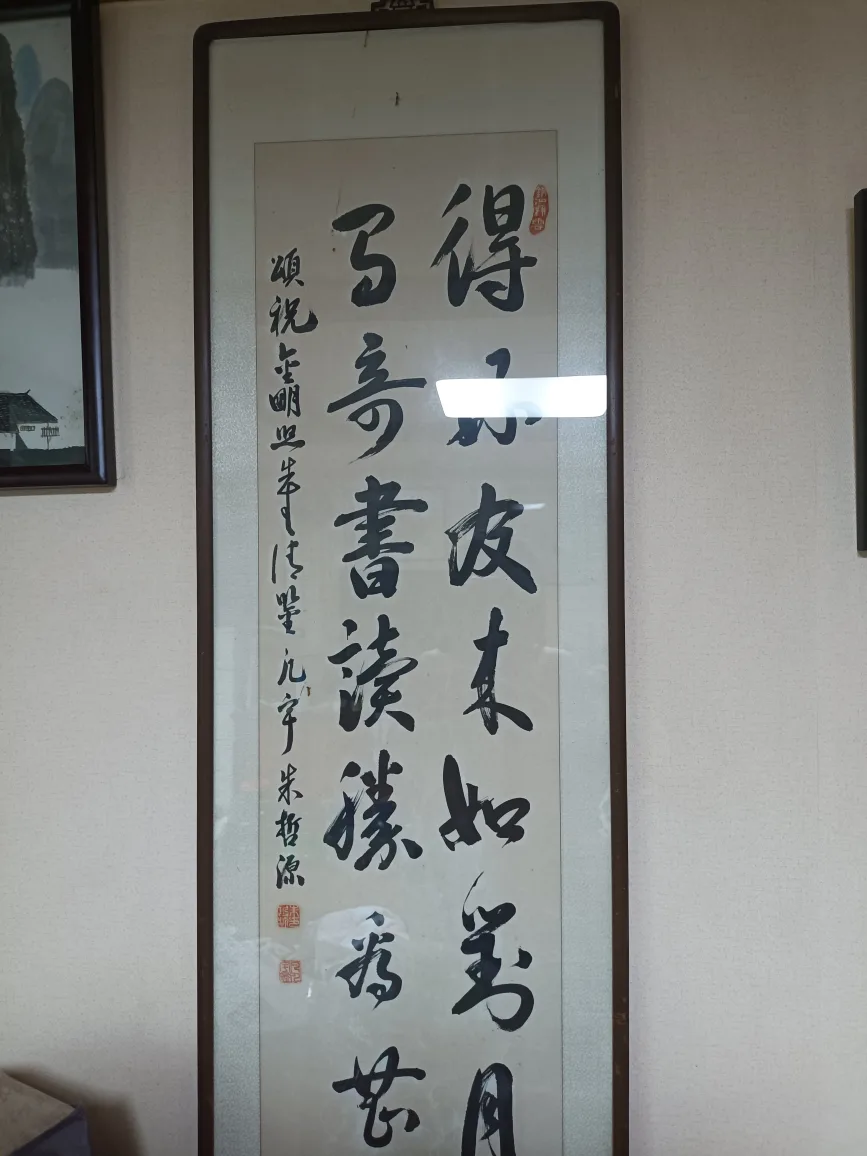 得好友来如對月
有奇書讀勝看花
頌祝金明照先生清鑒凡宇朱哲源